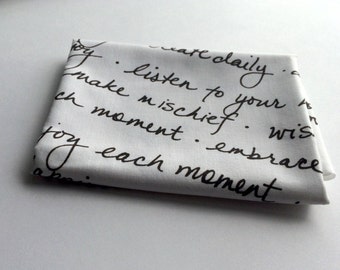 daily ·
joy · listen to your
make mischief · wis
ch moment · embrace
joy each moment ·